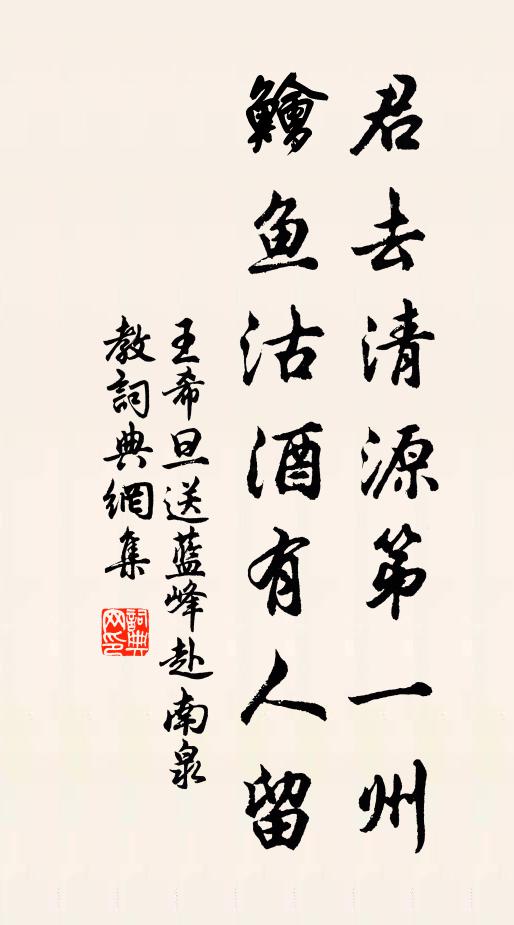 君去清源第一州
鱠魚沽酒有人留
王希旦送藍峰赴南泉
教詞典網集
詞典網印